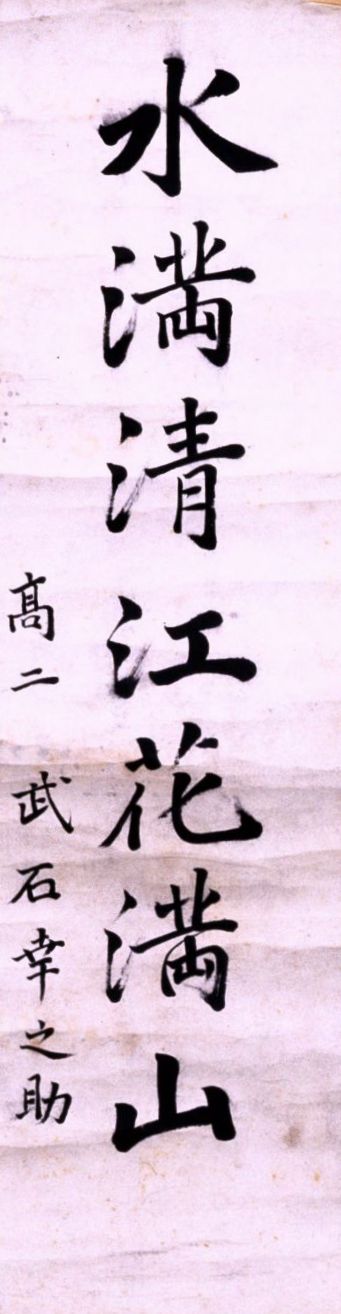 水満清江花満山
高二 武石幸之助